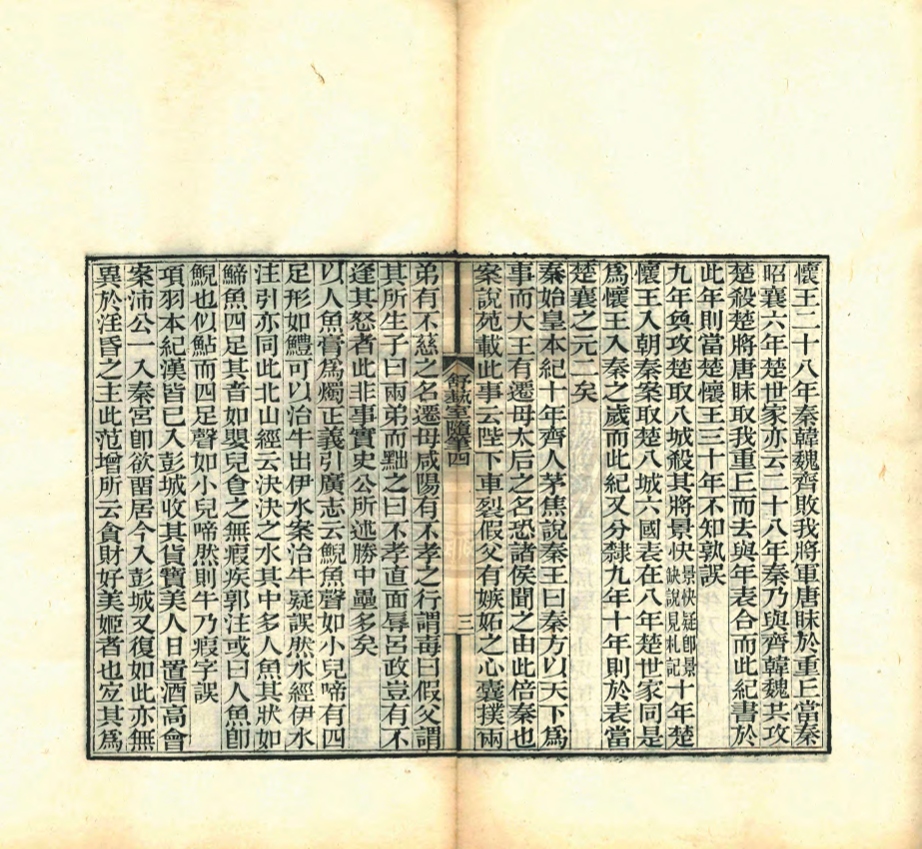 懷王二十八年秦韓魏齊敗我將軍唐眛於重丘當秦
昭襄六年楚世家亦云二十八年秦乃與齊韓魏共攻
楚殺楚將唐眛取我重丘而去與年表合而此紀書於
此年則當楚懷王三十年不知孰誤
九年奐攻楚取八城殺其將景快景快疑卽景缺說見札記十年楚
懷王入朝秦案取楚八城六國表在八年楚世家同是
爲懷王入秦之歲而此紀又分隸九年十年則於表當
楚襄之元二矣
秦始皇本紀十年齊人茅焦說秦王曰秦方以天下爲
事而大王有遷母太后之名恐諸侯聞之由此倍秦也
案說苑載此事云陛下車裂假父有嫉妬之心囊撲兩
舒藝室隨筆四
三
弟有不慈之名遷母咸陽有不孝之行謂毐曰假父謂
其所生子曰兩弟而黜之曰不孝直面辱呂政豈有不
逢其怒者此非事實史公所述勝中壘多矣
以人魚膏爲燭正義引廣志云鯢魚聲如小兒啼有四
足形如鱧可以治牛出伊水案治牛疑誤肰水經伊水
注引亦同此北山經云決決之水其中多人魚其狀如
䱱魚四足其音如嬰兒食之無瘕疾郭注或曰人魚卽
鯢也似鮎而四足聲如小兒啼肰則牛乃瘕字誤
項羽本紀漢皆已入彭城收其貨寶美人日置酒高會
案沛公一入秦宮卽欲畱居今入彭城又復如此亦無
異於淫昏之主此范增所云貪財好美姬者也宐其爲